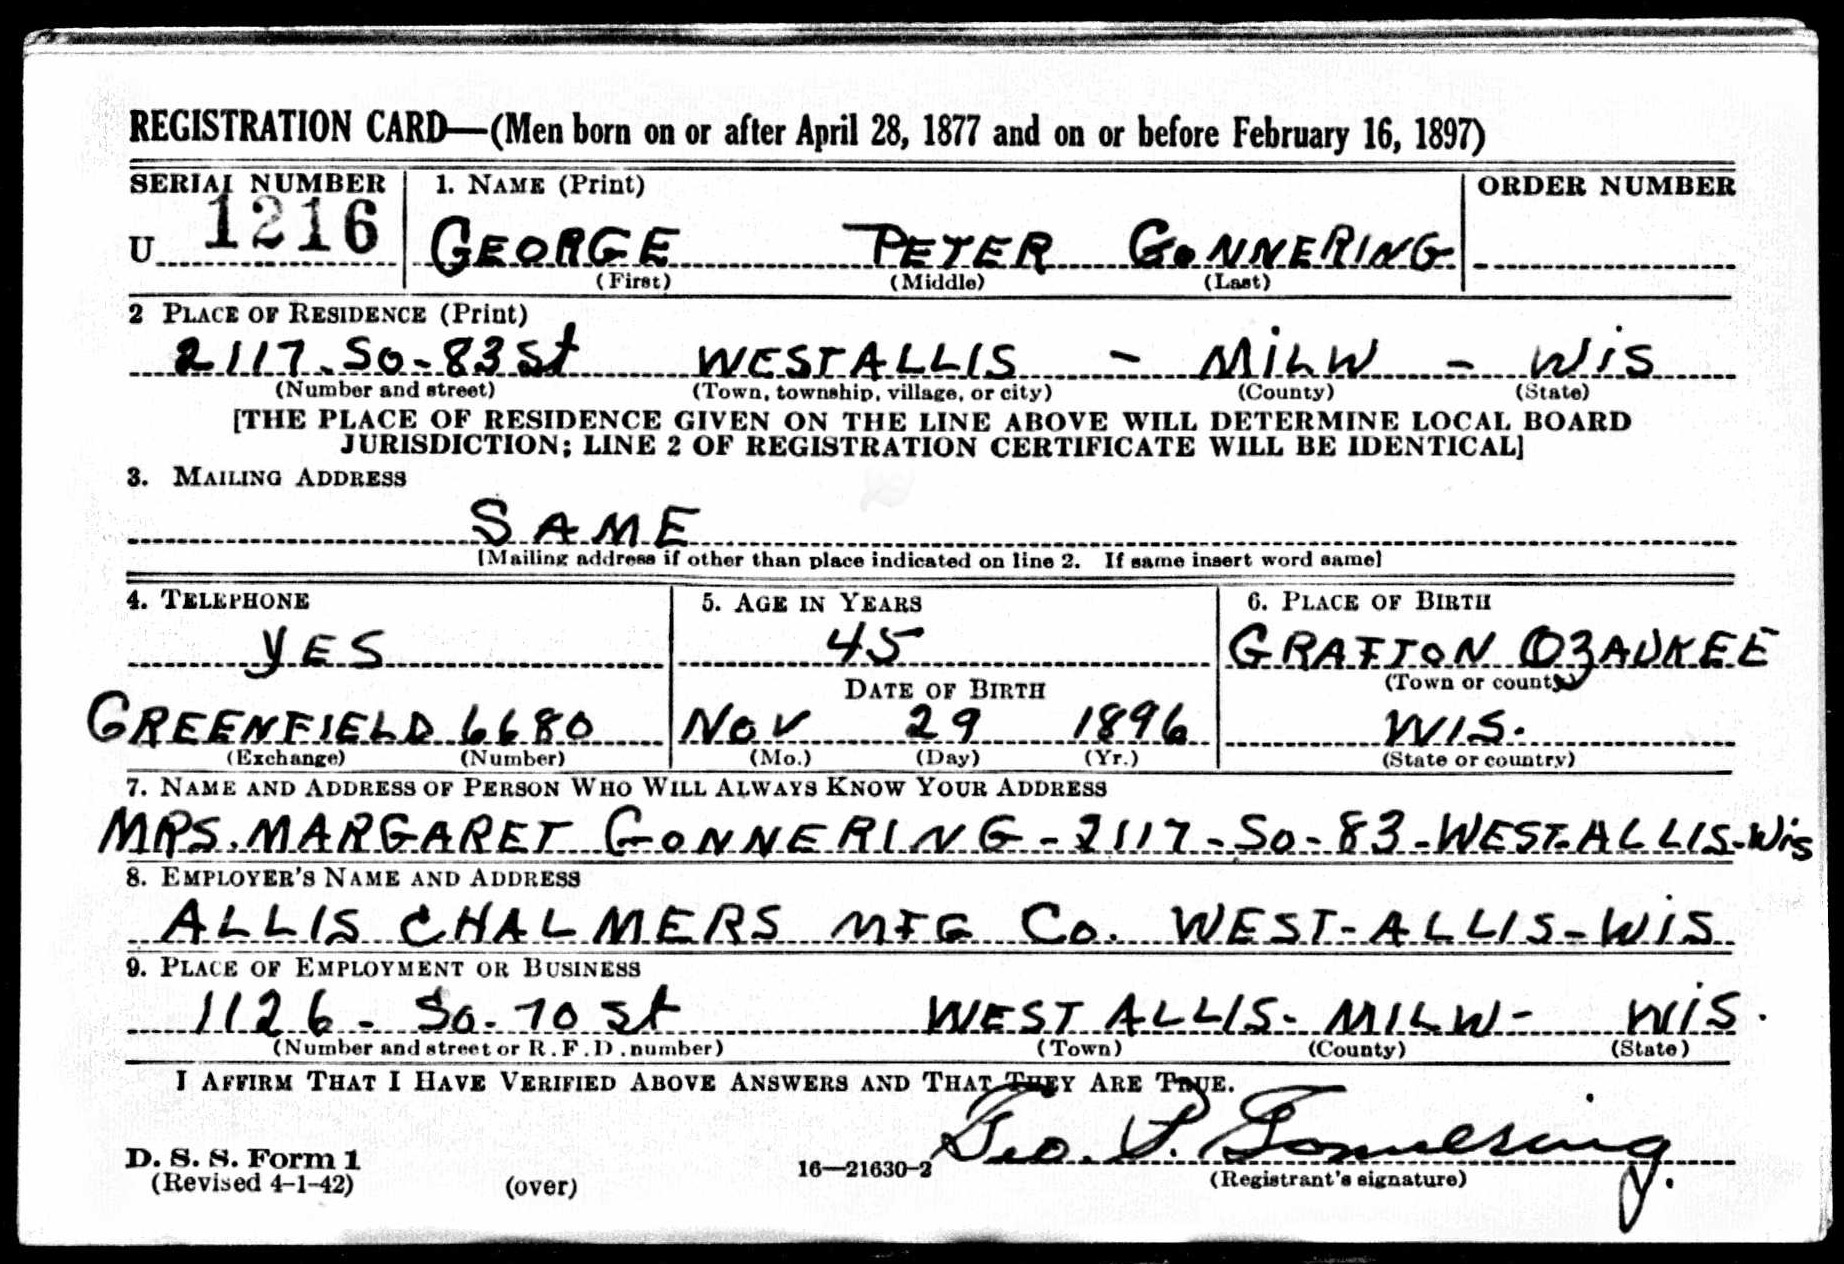 REGISTRATION CARD—(Men born on or after April 28, 1877 and on or before February 16, 1897)
SERIAL NUMBER 1. NAME (Print) ORDER NUMBER
U 1216 GEORGE PETER GONNERING
(First) (Middle) (Last)
2 PLACE OF RESIDENCE (Print)
2117-So-83 St WEST ALLIS - MILW - WIS
(Number and street) (Town, township, village, or city) (County) (State)
[THE PLACE OF RESIDENCE GIVEN ON THE LINE ABOVE WILL DETERMINE LOCAL BOARD
JURISDICTION; LINE 2 OF REGISTRATION CERTIFICATE WILL BE IDENTICAL]
3. MAILING ADDRESS
SAME
[Mailing address if other than place indicated on line 2. If same insert word same]
4. TELEPHONE 5. AGE IN YEARS 6. PLACE OF BIRTH
YES 45 GRAFTON OZAUKEE
DATE OF BIRTH (Town or county)
GREENFIELD 6680 NOV 29 1896 WIS.
(Exchange) (Number) (Mo.) (Day) (Yr.) (State or country)
7. NAME AND ADDRESS OF PERSON WHO WILL ALWAYS KNOW YOUR ADDRESS
MRS. MARGARET GONNERING - 2117 - So - 83 - WEST-ALLIS-Wis
8. EMPLOYER'S NAME AND ADDRESS
ALLIS CHALMERS MFG Co. WEST-ALLIS-WIS
9. PLACE OF EMPLOYMENT OR BUSINESS
1126 - So. 70 St WEST ALLIS- MILW- WIS.
(Number and street or R. F. D. number) (Town) (County) (State)
I AFFIRM THAT I HAVE VERIFIED ABOVE ANSWERS AND THAT THEY ARE TRUE.
Geo. P. Gonnering.
D. S. S. Form 1 16—21630-2
(Revised 4-1-42) (over) (Registrant's signature)